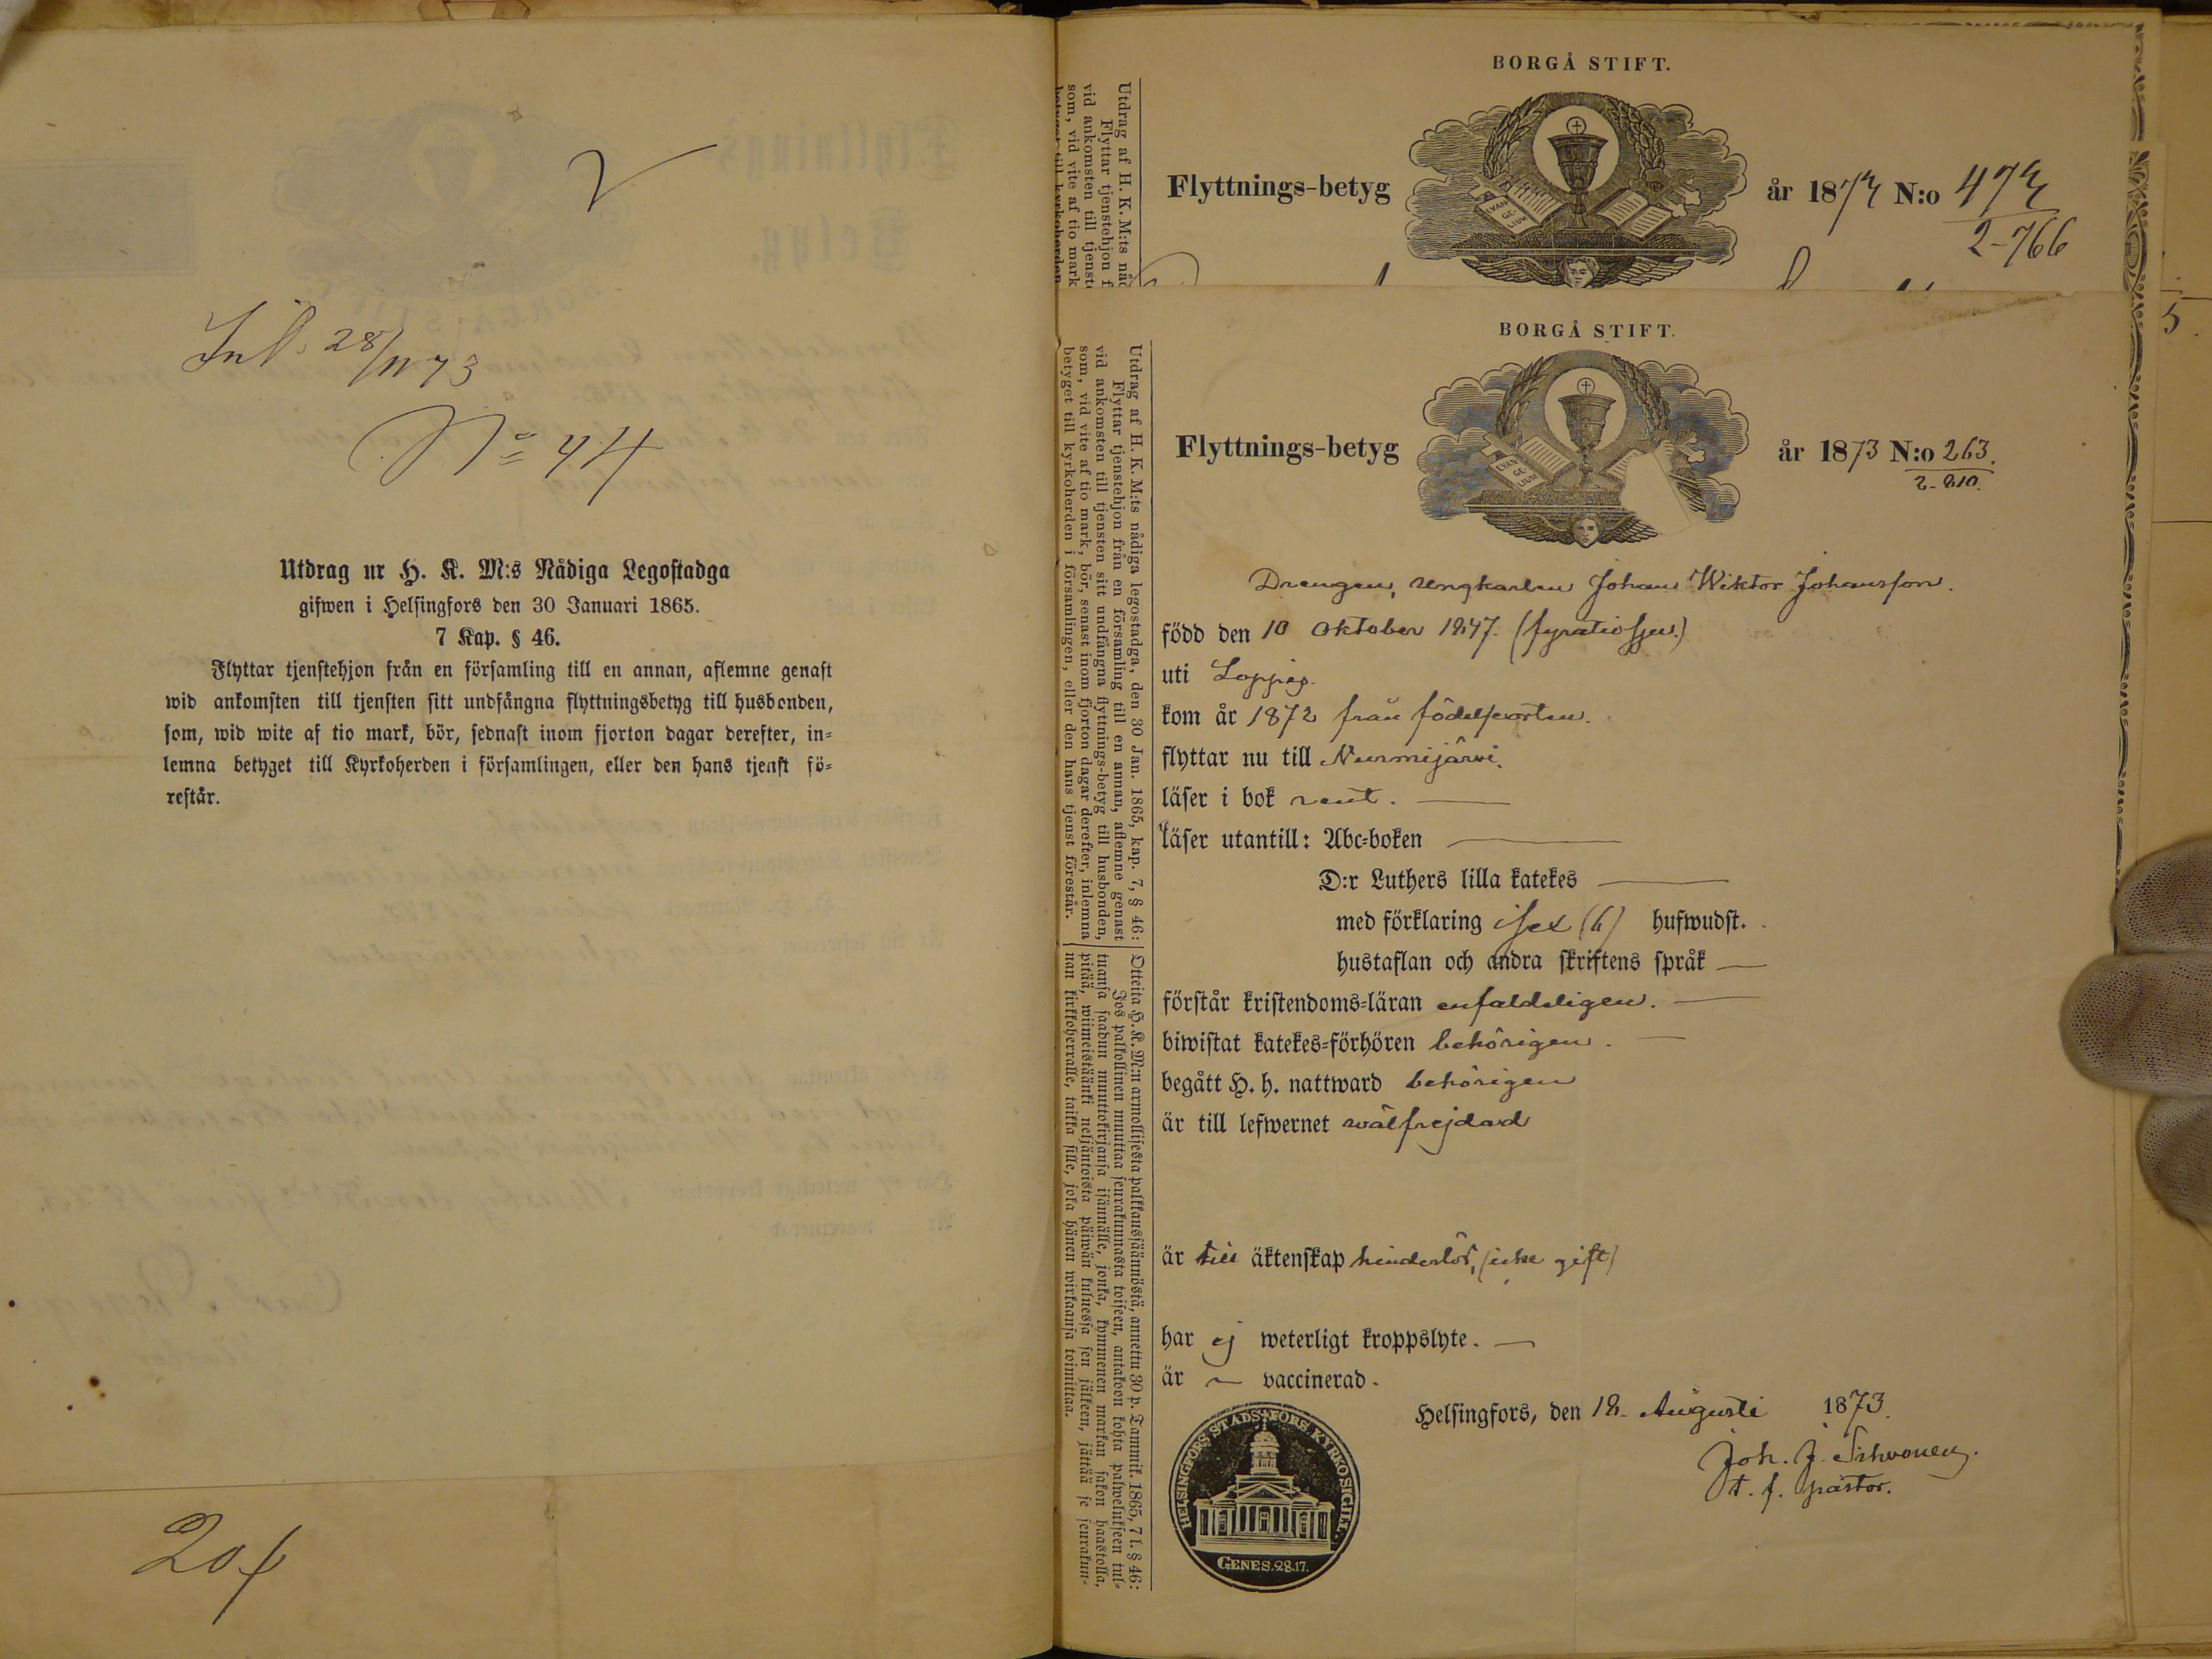 Inl. 28/11 73
No 44
Utdrag ur H. K. M:s Nådiga Legostadga
gifwen i Helsingfors den 30 Januari 1865.
7 Kap. § 46.
Flyttar tjenstehjon från en församling till en annan, aflemne genast
wid ankomsten till tjensten sitt undfångna flyttningsbetyg till husbonden,
som, wid wite af tio mark, bör, sednast inom fjorton dagar derefter, in=
lemna betyget till Kyrkoherden i församlingen, eller den hans tjenst fö=
restår.
BORGÅ STIFT.
Utdrag af H. K. M:ts nåd
Flyttar tjenstehjon f
vid ankomsten till tjenst
som, vid vite af tio mark
betyget till kyrkoherden
Flyttnings-betyg
EVAN
GE
LIUM
år 187 N:o 47
2-766
5.
BORGÅ STIFT.
Flyttnings-betyg
EVAN
GE
LIUM
år 1873 N:o 263.
2-810.
Drengen, ungkarlen Johan Wiktor Johansson.
född den 10 oktober 1847. (fyratiosju.)
uti Loppis.
kom år 1872 från födelseorten.
flyttar nu till Nurmijärvi.
läser i bok rent.
läser utantill: Abc=boken
D:r Luthers lilla katekes
med förklaring i sex (6) hufwudst.
hustaflan och andra skriftens språk
förstår kristendoms=läran enfaldeligen.
biwistat katekes=förhören behörigen.
begått H. h. nattward behörigen
är till lefwernet wälfrejdad
är till äktenskap hinderlös, (icke gift)
har ej weterligt kroppslyte.
är vaccinerad.
Helsingfors, den 18. Augusti 1873.
Joh. J.
t. f. pastor.
HELSINGFORS STADSFÖRS. KYRKOSIGILL.
GENES. 28.17.
Utdrag af H. K. M:ts nådiga legostadga, den 30 Jan. 1865, kap. 7, § 46:
Flyttar tjenstehjon från en församling till en annan, aflemne genast
vid ankomsten till tjensten sitt undfångna flyttnings-betyg till husbonden,
som, vid vite af tio mark, bör, senast inom fjorton dagar derefter, inlemna
betyget till kyrkoherden i församlingen, eller den hans tjenst förestår.
Otteita H. K. M:n armollisesta palkkaussäännöstä, annettu 30 p. Tammik. 1865, 7 l. § 46:
Jos palkollinen muuttaa seurakunnasta toiseen, antakoon kohta palwelukseen tul=
tuansa saadun muuttokirjansa isännälle, jonka, kymmenen markan sakon haastolla,
pitää, wiimeistäänki neljäntoista päiwän kuluessa sen jälkeen, jättää se seurakun=
nan kirkkoherralle, taikka sille, joka hänen wirkaansa toimittaa.